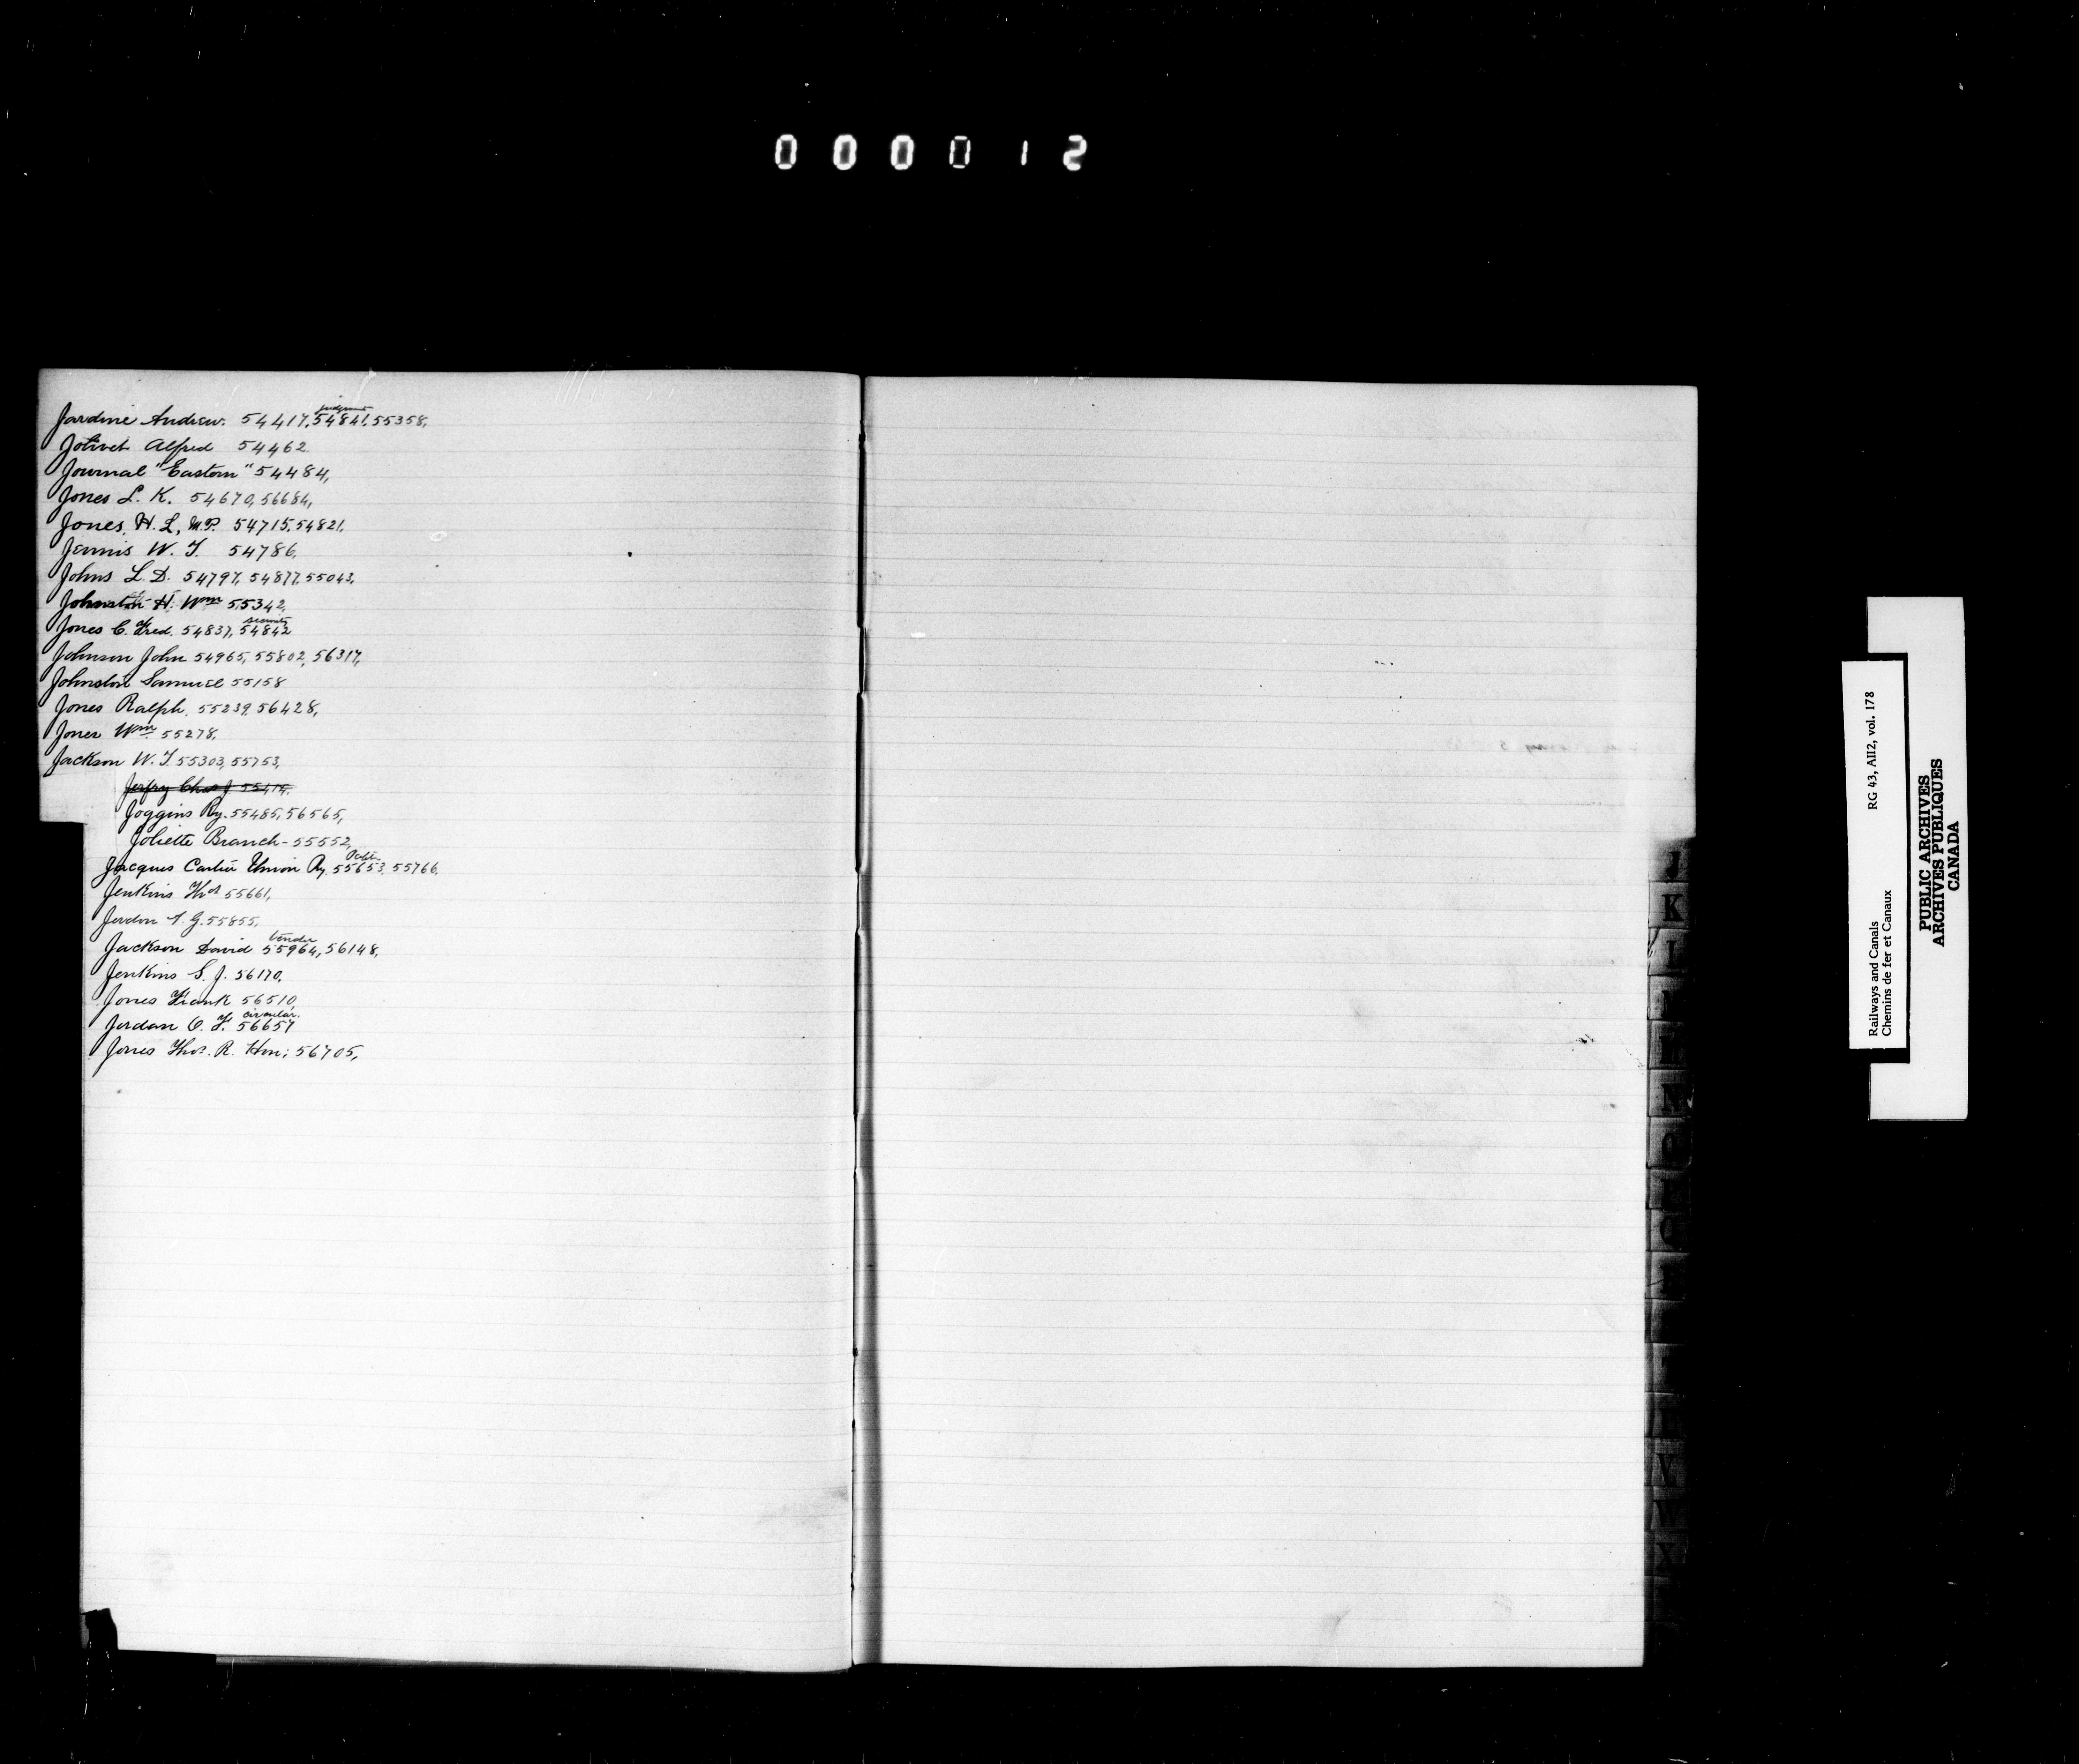 000012
Jardine Andrew. 54417, 54841, 55358,
Jolivet Alfred 54462.
Journal "Eastern" 54484,
Jones L. K. 54670, 56684,
Jones, H. L, M.P. 54715, 54821,
Jennis W. J. 54786,
Johns L. D. 54797, 54877, 55043,
Johnston H. Wm 55342,
security
Jones C. Fred. 54837, 54842
Johnson John 54965, 55802, 56317,
Johnston Samuel 55158
Jones Ralph. 55239, 56428,
Jones Wm 55278,
Jackson W. J. 55303, 55753,
Joggins Ry. 55485, 56565,
Joliette Branch - 55552,
Jacques Cartier Union Ry. 55653, 55766,
Jenkins Thos 55661,
Jordon G. 55855,
tender
Jackson David 55964, 56148,
Jenkins S. J. 56170,
Jones Frank 56510,
circular.
Jordan O. F. 56657
Jones Thos. R. Hon: 56705,
J
K
L
M
N
O
V
W
X
Railways and Canals RG 43, AII2, vol. 178
Chemins de fer et Canaux
PUBLIC ARCHIVES
ARCHIVES PUBLIQUES
CANADA